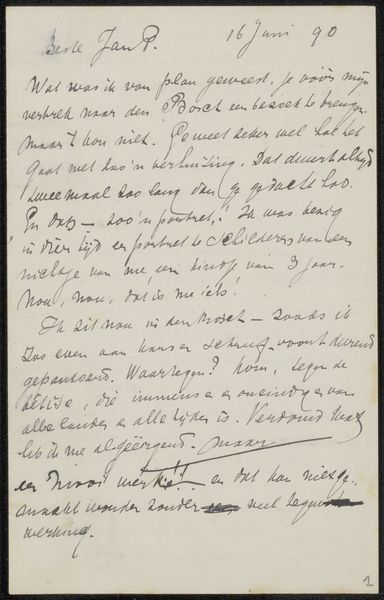 Beste Jan P. 16 Juni 90
Wat was ik van plan geweest, je vóór mijn
vertrek naar den Bosch een bezoek te brengen.
maar 't kon niet. Je weet zeker wel hoe het
gaat met zoo'n verhuizing. Dat duurt altijd
tweemaal zoo lang dan je gedacht had.
En dats — zoo'n portret! Ik was bezig
in dien tijd een portret te schilderen van een
nichtje van me, een kindje van 3 jaar.
Nou, nou, dat is me iets!
Ik zit nou in den Bosch — zooals ik
zoo even aan
Waartegen? Kom, tegen de
bêtise, die immense en oneindige van
alle landen en alle tijden is. Verdomd wat
heb ik me al geërgerd. maar
en dat kon niet ge-
maakt worden zonder veel tegen
werking.
1